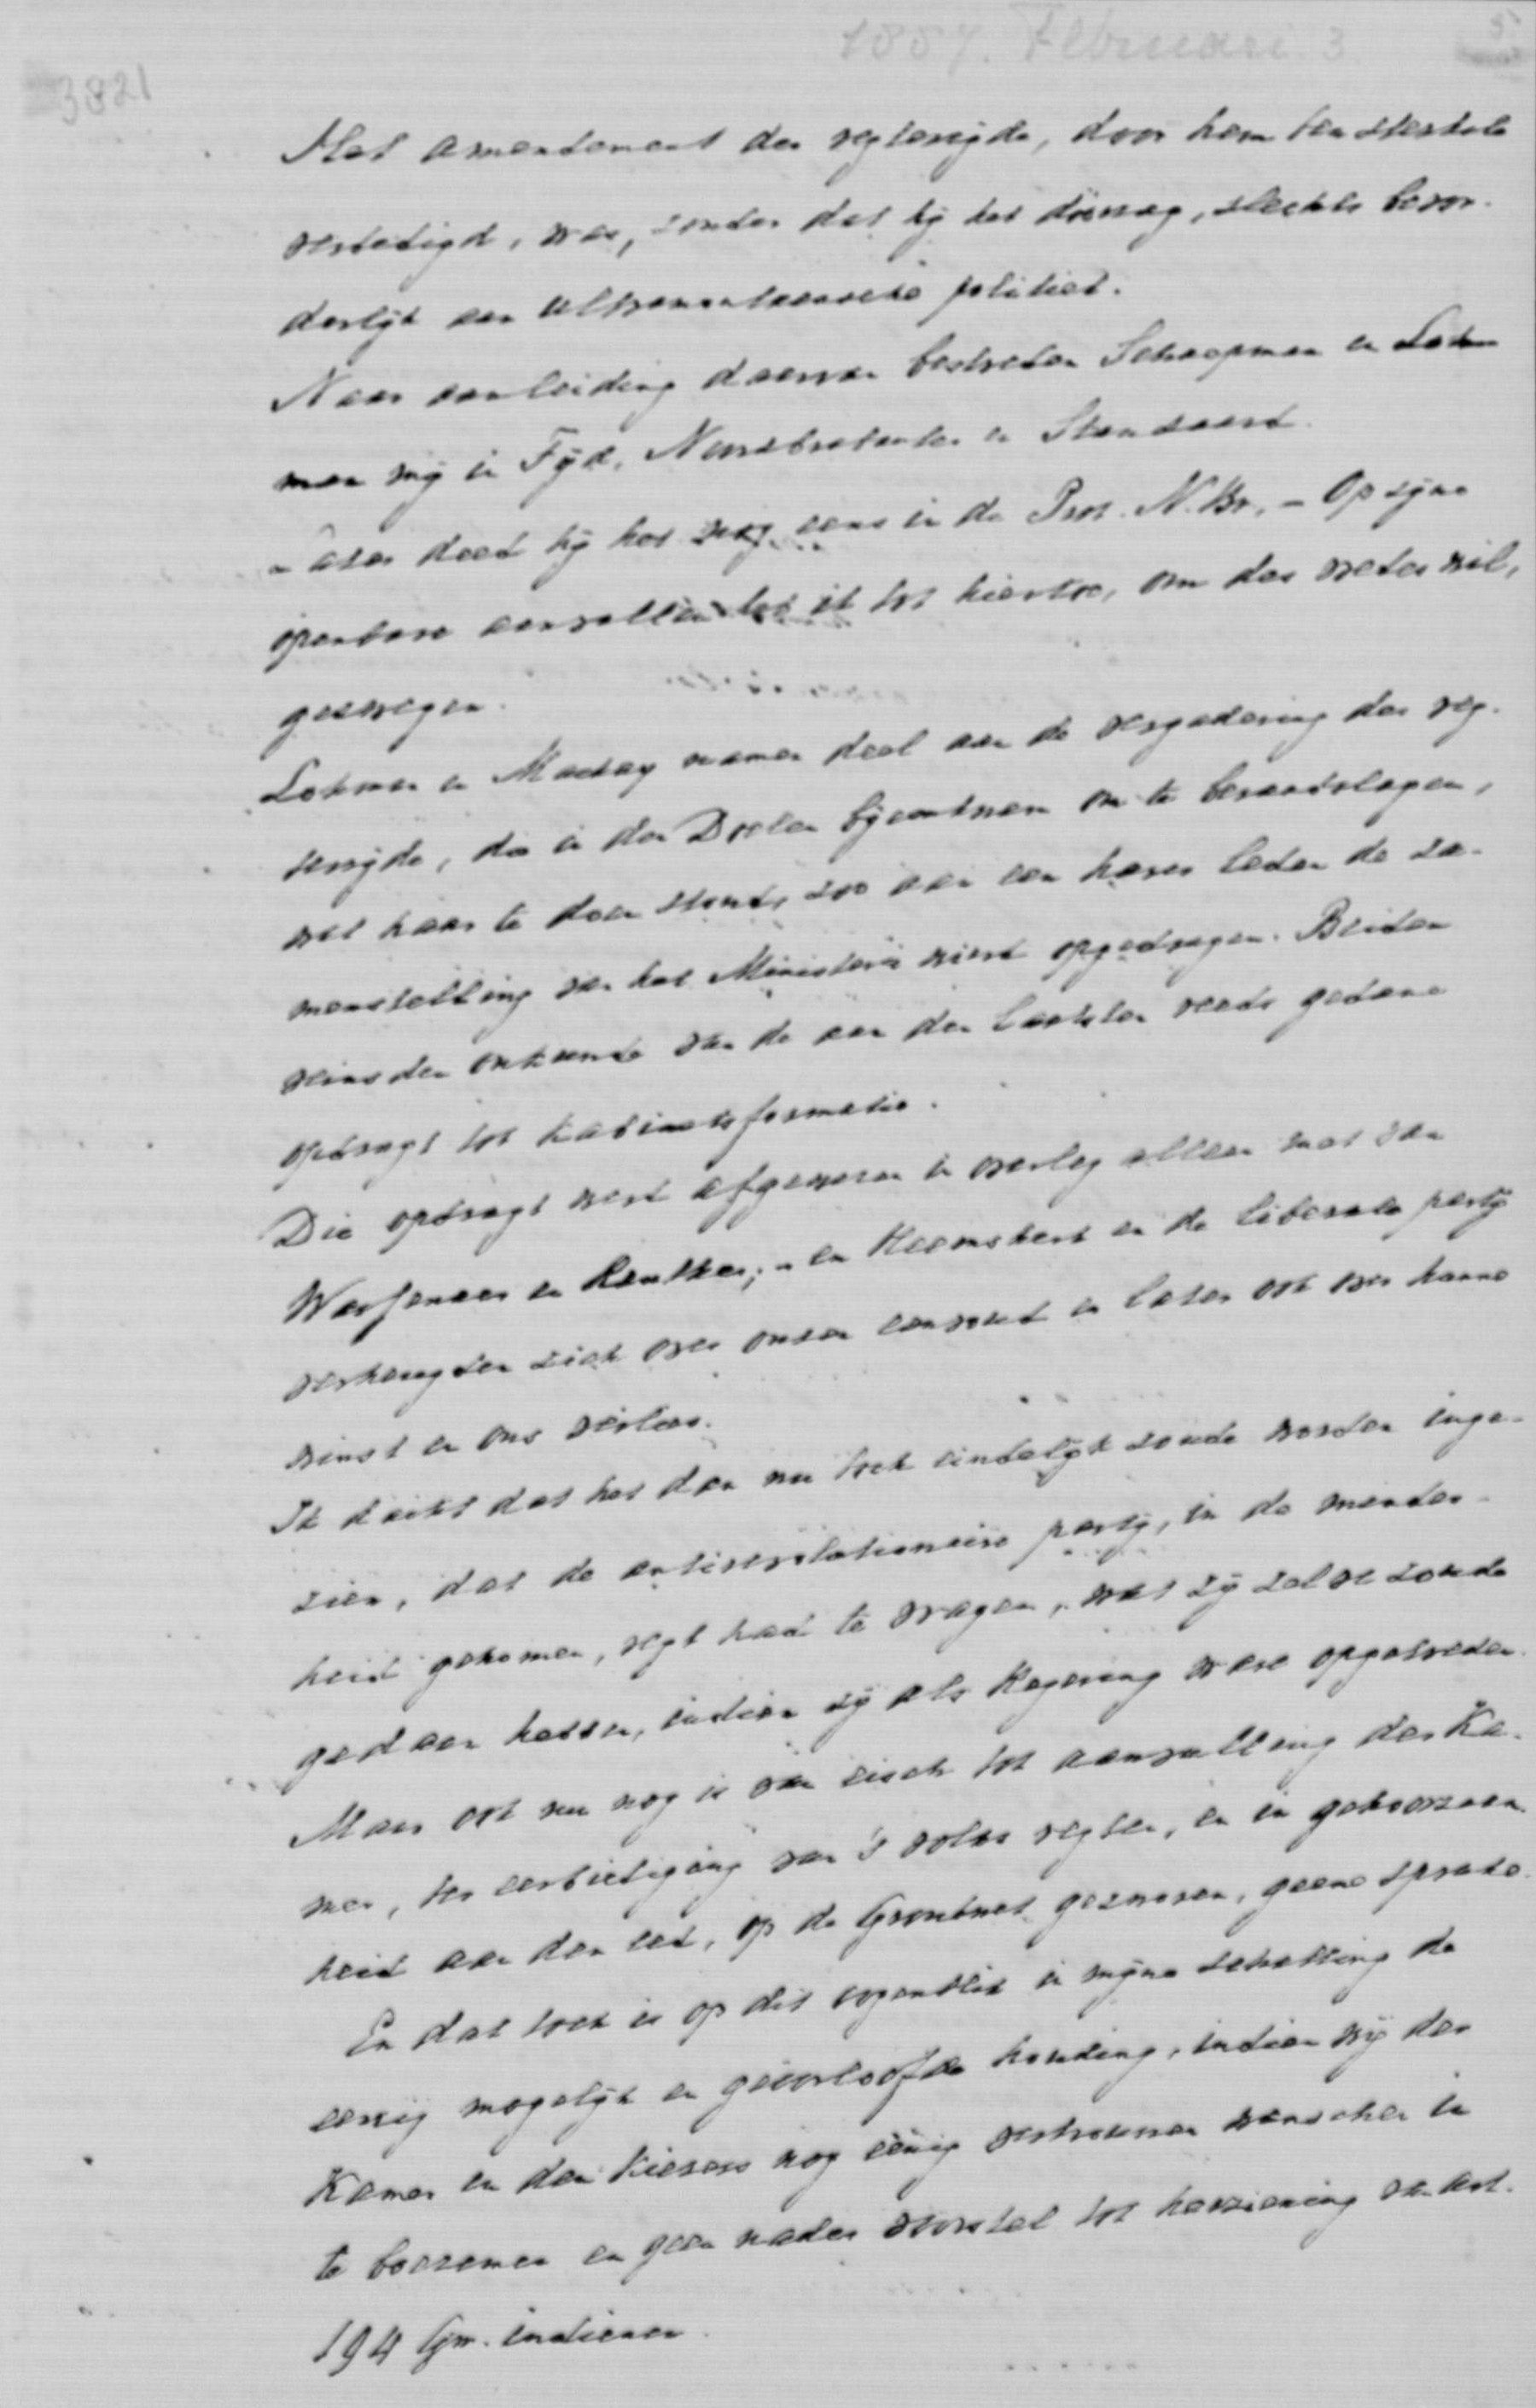 1887. Februari 3
3821
Het amendement der regterzijde, door hem ten sterkste
verdedigd, was, zonder dat hij het doorzag, slechts bevor-
derlijk aan ultramontaansche politiek.
Naar aanleiding daarvan bestreden Schaepman en Loh
man mij in Tijd, Noordbrabanter en Standaard.
- Later deed hij het nog eens in de Prov. N.Br. - Op zijne
openbare aanvallen heb ik tot hiertoe, om des vredes wil,
gezwegen.
Lohman en Mackay namen deel aan de vergadering der reg-
terzijde, die in den Doelen bijeenkwam om te beraadslagen,
wat haar te doen stond, zoo aan een harer leden de za-
menstelling van het Ministerie wierd opgedragen. Beiden
veinsden onkunde van de aan den laatsten reeds gedane
opdragt tot kabinetsformatie.
Die opdragt werd afgewezen in overleg alleen met van
Wassenaer en Keuchen; - en Heemskerk en de liberale partij
verheugden zich over onzen eenvoud en later ook over hunne
winst en ons verlies.
Ik dacht dat het dan nu toch eindelijk zoude worden inge-
zien, dat de antirevolutionaire partij, in de minder-
heid gekomen, regt had te vragen, wat zij zelve zoude
gedaan hebben, indien zij als Regering ware opgetreden.
Maar ook nu nog is van eisch tot aanvulling der Ka-
mer, tot eerbiediging van 's volks regten, en in gehoorzaam-
heid aan den eed, op de Grondwet gezworen, geene sprake.
En dat toch is op dit oogenblik in mijne schatting de
eenig mogelijk en geoorloofde houding, indien wij der
Kamer en den kiezers nog eenig vertrouwen wenschen in
te boezemen en geen nader voorstel tot herziening van art.
194 Gw. indienen.